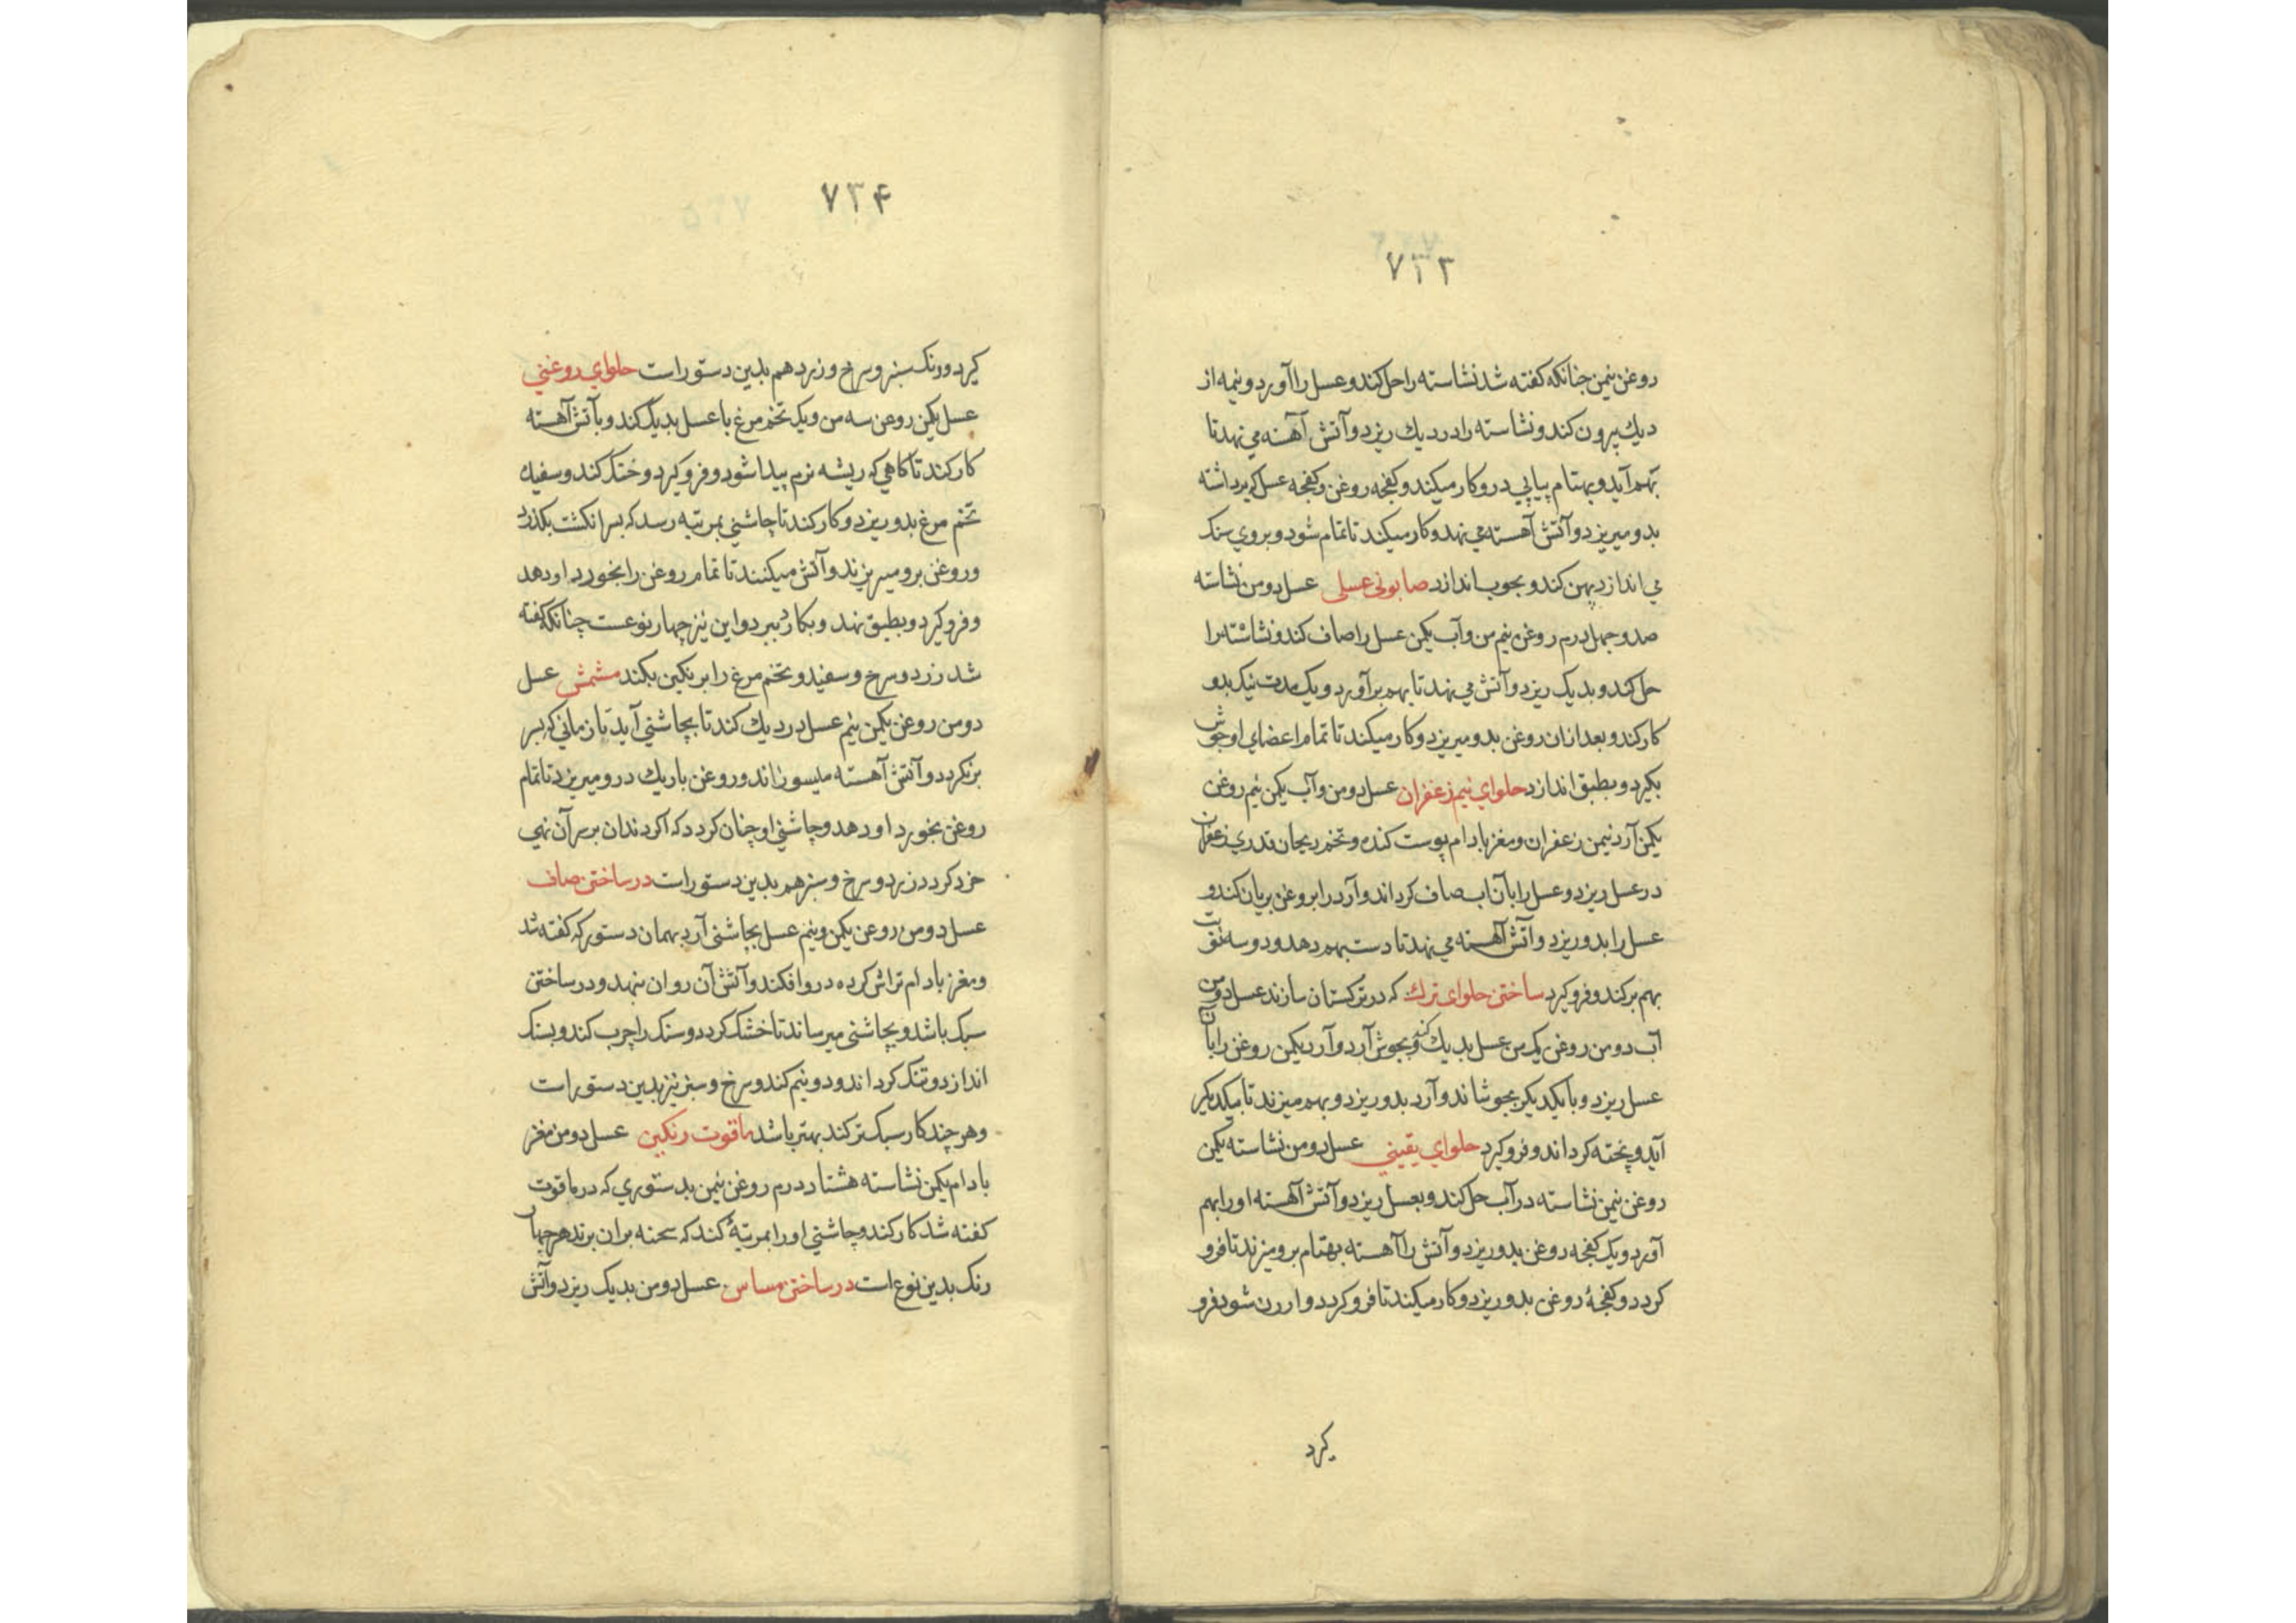 ۷۳۳
روغن نیمن جنانکه کفته شد نشاسته را حل کند و عسل را آورد و نیمه از
دیك بیرون کند و نشاسته را در دیك ریزد و آتش آهسته می نهد تا
بهم آید و بهتام پیاپی در و کار میکند و کفجه روغن و کفجه عسل که برداشته
بدو میریزد و آتش آهسته می نهد و کار میکند تا تمام شود و بروي سنک
می اندازد پهن کند و بجوب اندازد صابونی عسلی عسل دو من نشاسته
صد و جهل درم روغن نیم من و آب یکمن عسل را صاف کند و نشاسته را
حل کند و بدیک ریزد و آتش می نهد تا بهم بر آورد و یک مدت نیک بدو
کار کند و بعد ازان روغن بدو میریزد و کار میکند تا تمام اعضای او جوش
بکیرد و بطبق اندازد حلواي نیم زعفران عسل دو من و آب یکمن نیم روغن
یکمن آرد نیمن زعفران و مغز بادام پوست کنده و تخم ریحان قدري زعفران
در عسل ریزد و عسل را بآن اب صاف کرداند و آرد را بروغن بریان کند و
عسل را بدو ریزد و آتش آهسته می نهد تا دست بهم دهد و دو سه نوبت
بهم بر کند و فرو کیرد ساختن حلوای ترك که در ترکستان سازند عسل دو من
آب دو من روغن یک من عسل بدیك کند و بجوش آرد و آرد یکمن روغن را بآن
عسل ریزد و با یکدیکر بجوشاند و آرد بدو ریزد و بهم میزند تا بیکدیکر
آید و پخته کرداند و فرو کیرد حلواي یقینی عسل دو من نشاسته یکمن
روغن نیمن نشاسته در آب حل کند و بعسل ریزد و آتش آهسته او را بهم
آورد و یک کفجه روغن بدو ریزد و آتش را آهسته بهتام برو میزند تا فرو
کردد و کفجهٔ روغن بدو ریزد و کار میکند تا فرو کردد و ارزن شود فرو
کیرد
۷۳۴
کیرد و رنک سبز و سرخ و زرد هم بدین دستور است حلواي روغنی
عسل یکمن روغن سه من و یک تخم مرغ با عسل بدیک کند و بآتش آهسته
کار کند تا کاهی که ریشه نرم پیدا شود و فرو کیرد و خنک کند و سفیدك
تخم مرغ بدو ریزد و کار کند تا چاشنی بمرتبه رسد که بسر انکشت بکذرد
و روغن برو میریزند و آتش میکنند تا تمام روغن را بخورد او دهد
و فرو کیرد و بطبق نهد و بکارد ببرد و این نیز چهار نوعست چنانکه کفته
شد زرد و سرخ و سفید و تخم مرغ را برنکین بکند مشمش عسل
دو من روغن یکمن نیم عسل در دیك کند تا بچاشنی آید تا زمانی که بسر
برنکردد و آتش آهسته میسوزاند و روغن باریك در و میریزد تا تمام
روغن بخورد او دهد و چاشنی او چنان کردد که اکر دندان بر سر آن نهی
خرد کردد زرد و سرخ و سبز هم بدین دستور است در ساختن صاف
عسل دو من روغن یکمن و نیم عسل بچاشنی آرد بهمان دستور که کفته شد
و مغز بادام تراش کرده در و افکند و آتش آن روان بنهد و در ساختن
سبک باشد و بچاشنی میرساند تا خشک کردد و سنک را چرب کند و بسنک
اندازد و تنک کرداند و دو نیم کند و سرخ و سبز نیز بدین دستور است
و هر چند کار سبک تر کند بهتر باشد ماقوت رنکین عسل دو من مغز
بادام یکمن نشاسته هشتاد درم روغن نیمن بدستوري که در ماقوت
کفته شد کار کند و چاشنی او را بمرتبهٔ کند که سحنه بران برند هر چهار
رنک بدین نوع است در ساختن مساس عسل دو من بدیک ریزد و آتش